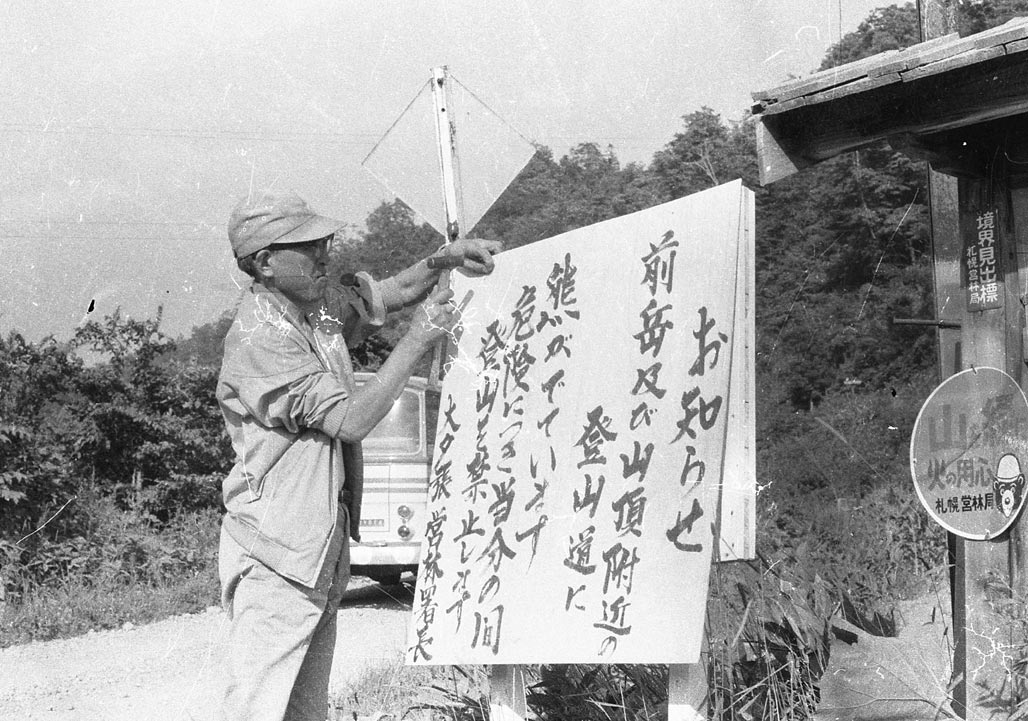 お知らせ
前岳及び山頂附近の
登山道に
熊がでています
危険につき当分の間
登山を禁止します
大夕張営林署長
境界見出標
札幌営林局
山
火の用心
札幌営林局